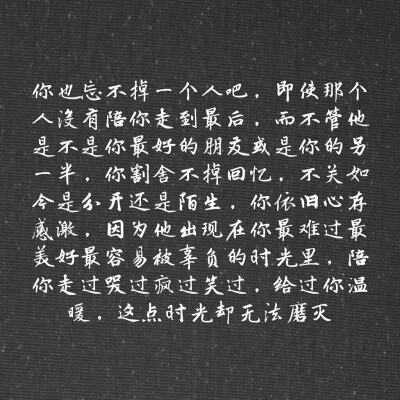 你也忘不掉一个人吧，即使那个
人没有陪你走到最后，而不管他
是不是你最好的朋友或是你的另
一半，你割舍不掉回忆，不关如
今是分开还是陌生，你依旧心存
感激，因为他出现在你最难过最
美好最容易被辜负的时光里，陪
你走过哭过疯过笑过，给过你温
暖，这点时光却无法磨灭